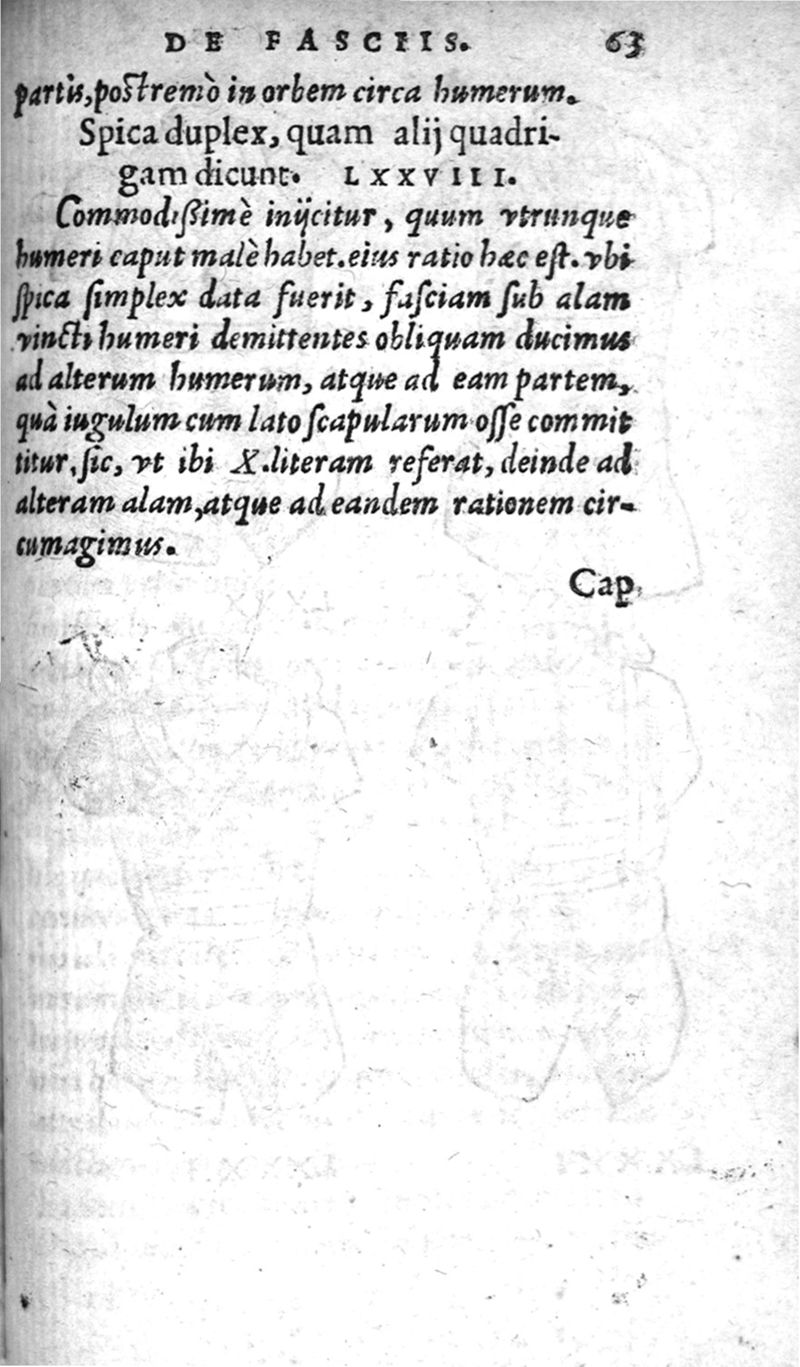 DE FASCIIS. 63
partis, postremò in orbem circa humerum.
Spica duplex, quam alij quadri-
gam dicunt. LXXVIII.
Commodissimè inijcitur, quum vtrunque
humeri caput malè habet. eius ratio hæc est. vbi
spica simplex data fuerit, fasciam sub alam
vincti humeri demittentes obliquam ducimus
ad alterum humerum, atque ad eam partem,
quà iugulum cum lato scapularum osse commit
titur, sic, vt ibi X. literam referat, deinde ad
alteram alam, atque ad eandem rationem cir-
cumagimus.
Cap